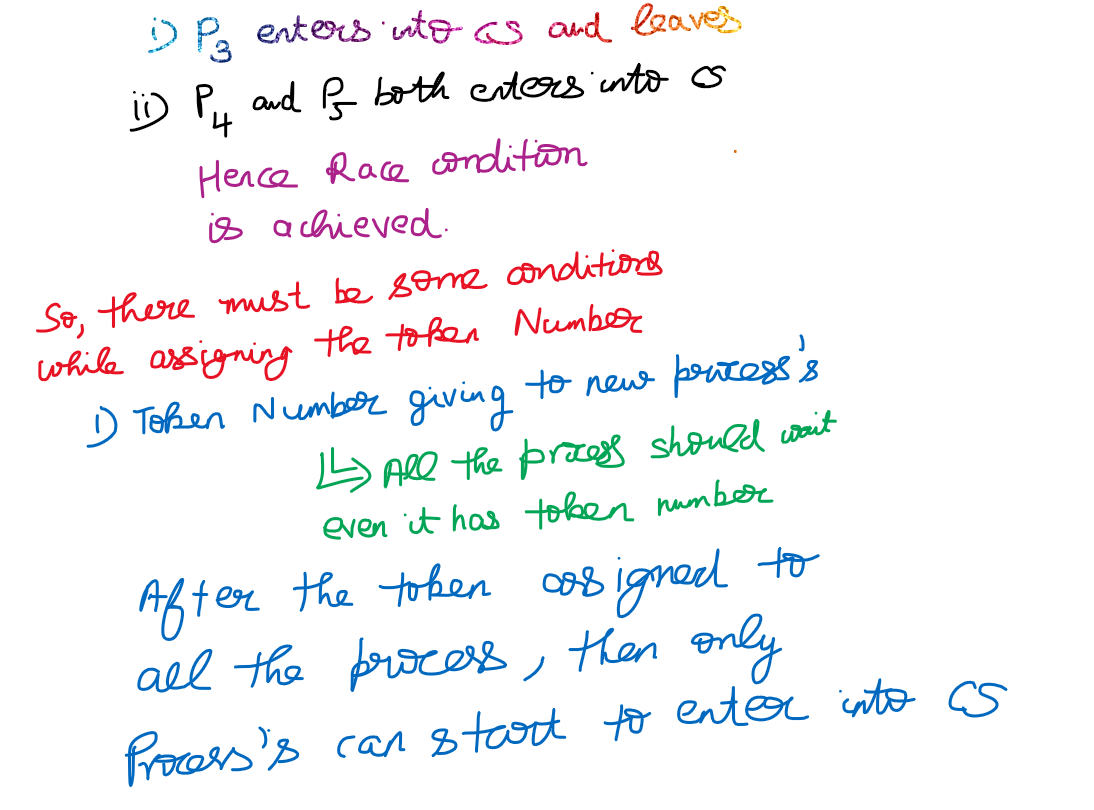 i) P3 enters into CS and leaves
ii) P4 and P5 both enters into CS
Hence Race condition
is achieved.
So, there must be some conditions
while assigning the token Number
1) Token Number giving to new process's
↳ All the process should wait
even it has token number
After the token assigned to
all the process, then only
Process's can start to enter into CS